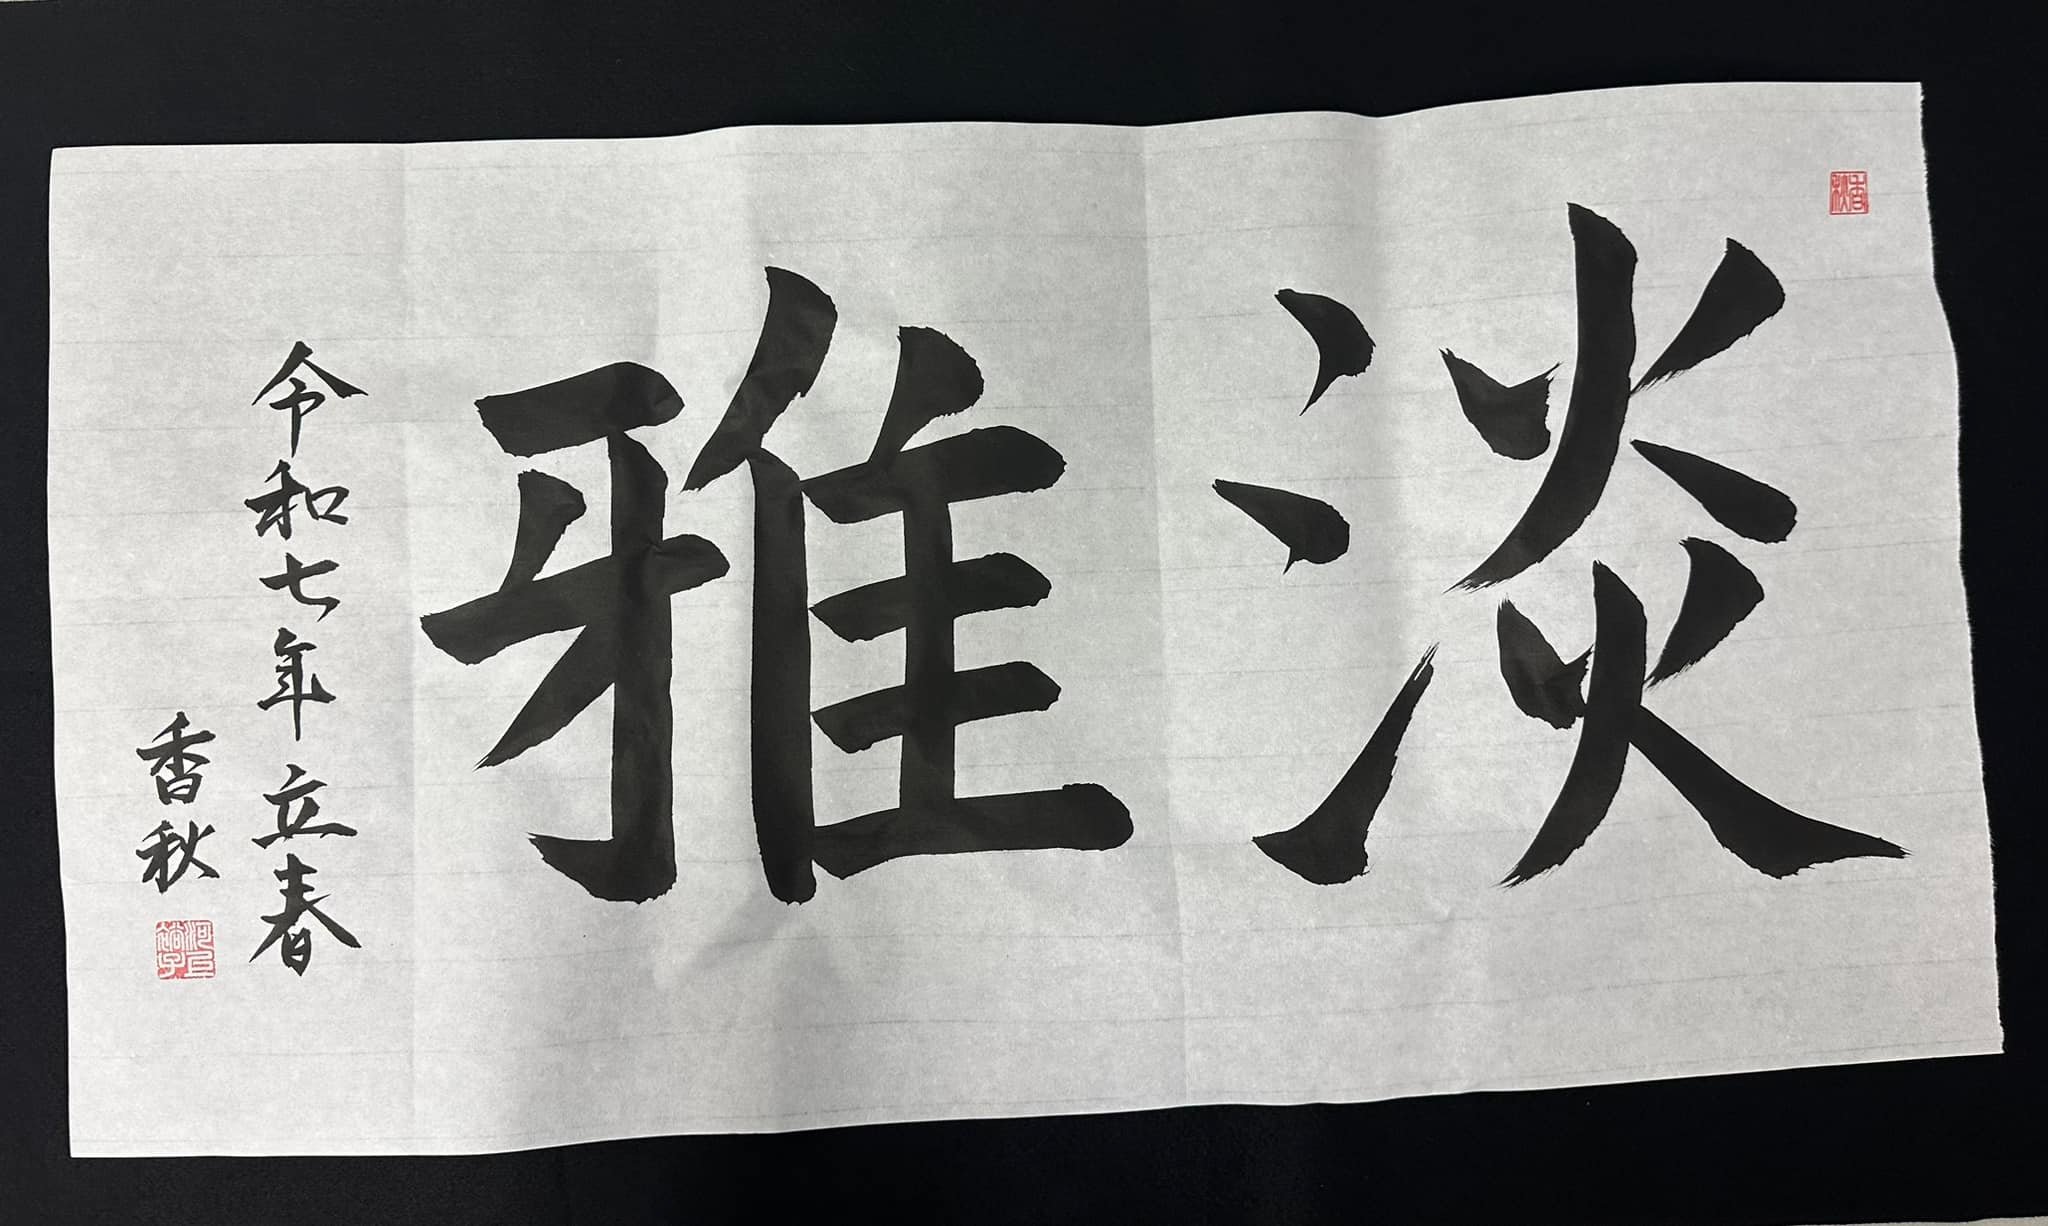 淡雅
令和七年立春
香秋
香秋